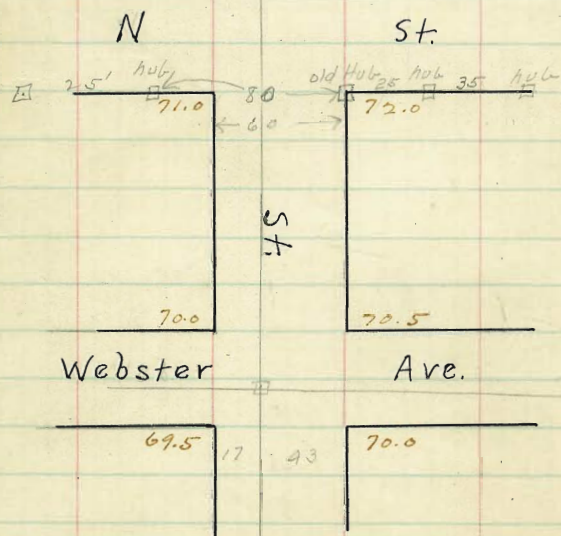 N St.
25' hub 80 old Hub 25 hub 35 hub
71.0 60 72.0
St.
70.0 70.5
Webster Ave.
69.5 70.0
17 43